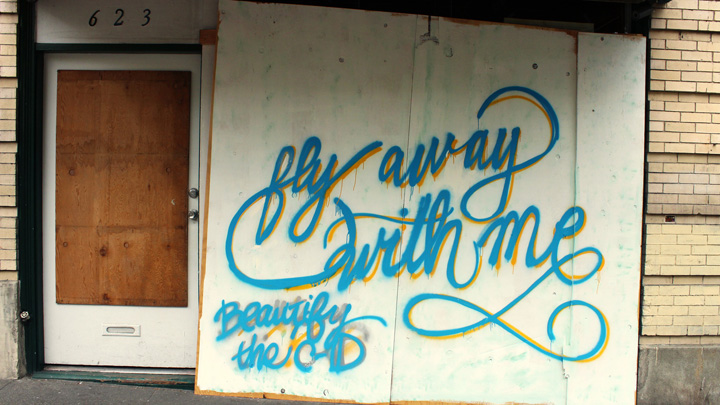 623
fly away
with me
Beautify
the C-ID